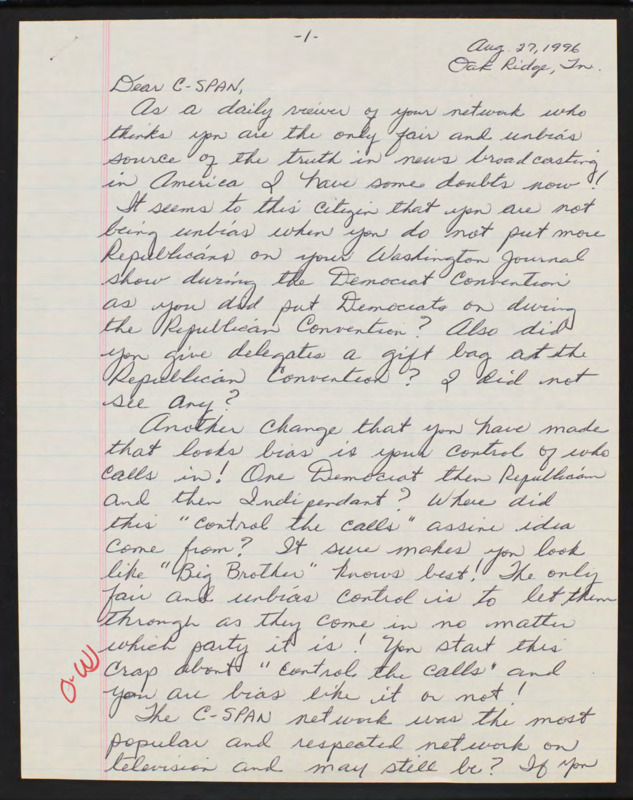 -1-
Aug. 27, 1996
Oak Ridge, Tn.
Dear C-SPAN,
As a daily viewer of your network who
thinks you are the only fair and unbias
source of the truth in news broadcasting
in America I have some doubts now!
It seems to this citizin that you are not
being unbias when you do not put more
Republicans on your Washington Journal
show during the Democrat Convention
as you did put Democrats on during
the Republican Convention? Also did
you give delegates a gift bag at the
Republican Convention? I did not
see any?
Another change that you have made
that looks bias is your control of who
calls in! One Democrat then Republican
and then Indipendant? Where did
this "control the calls" assine idea
come from? It sure makes you look
like "Big Brother" knows best! The only
fair and unbias control is to let them
through as they come in no matter
which party it is! You start this
crap about "control the calls" and
you are bias like it or not!
The C-SPAN network was the most
popular and respected network on
television and may still be? If you